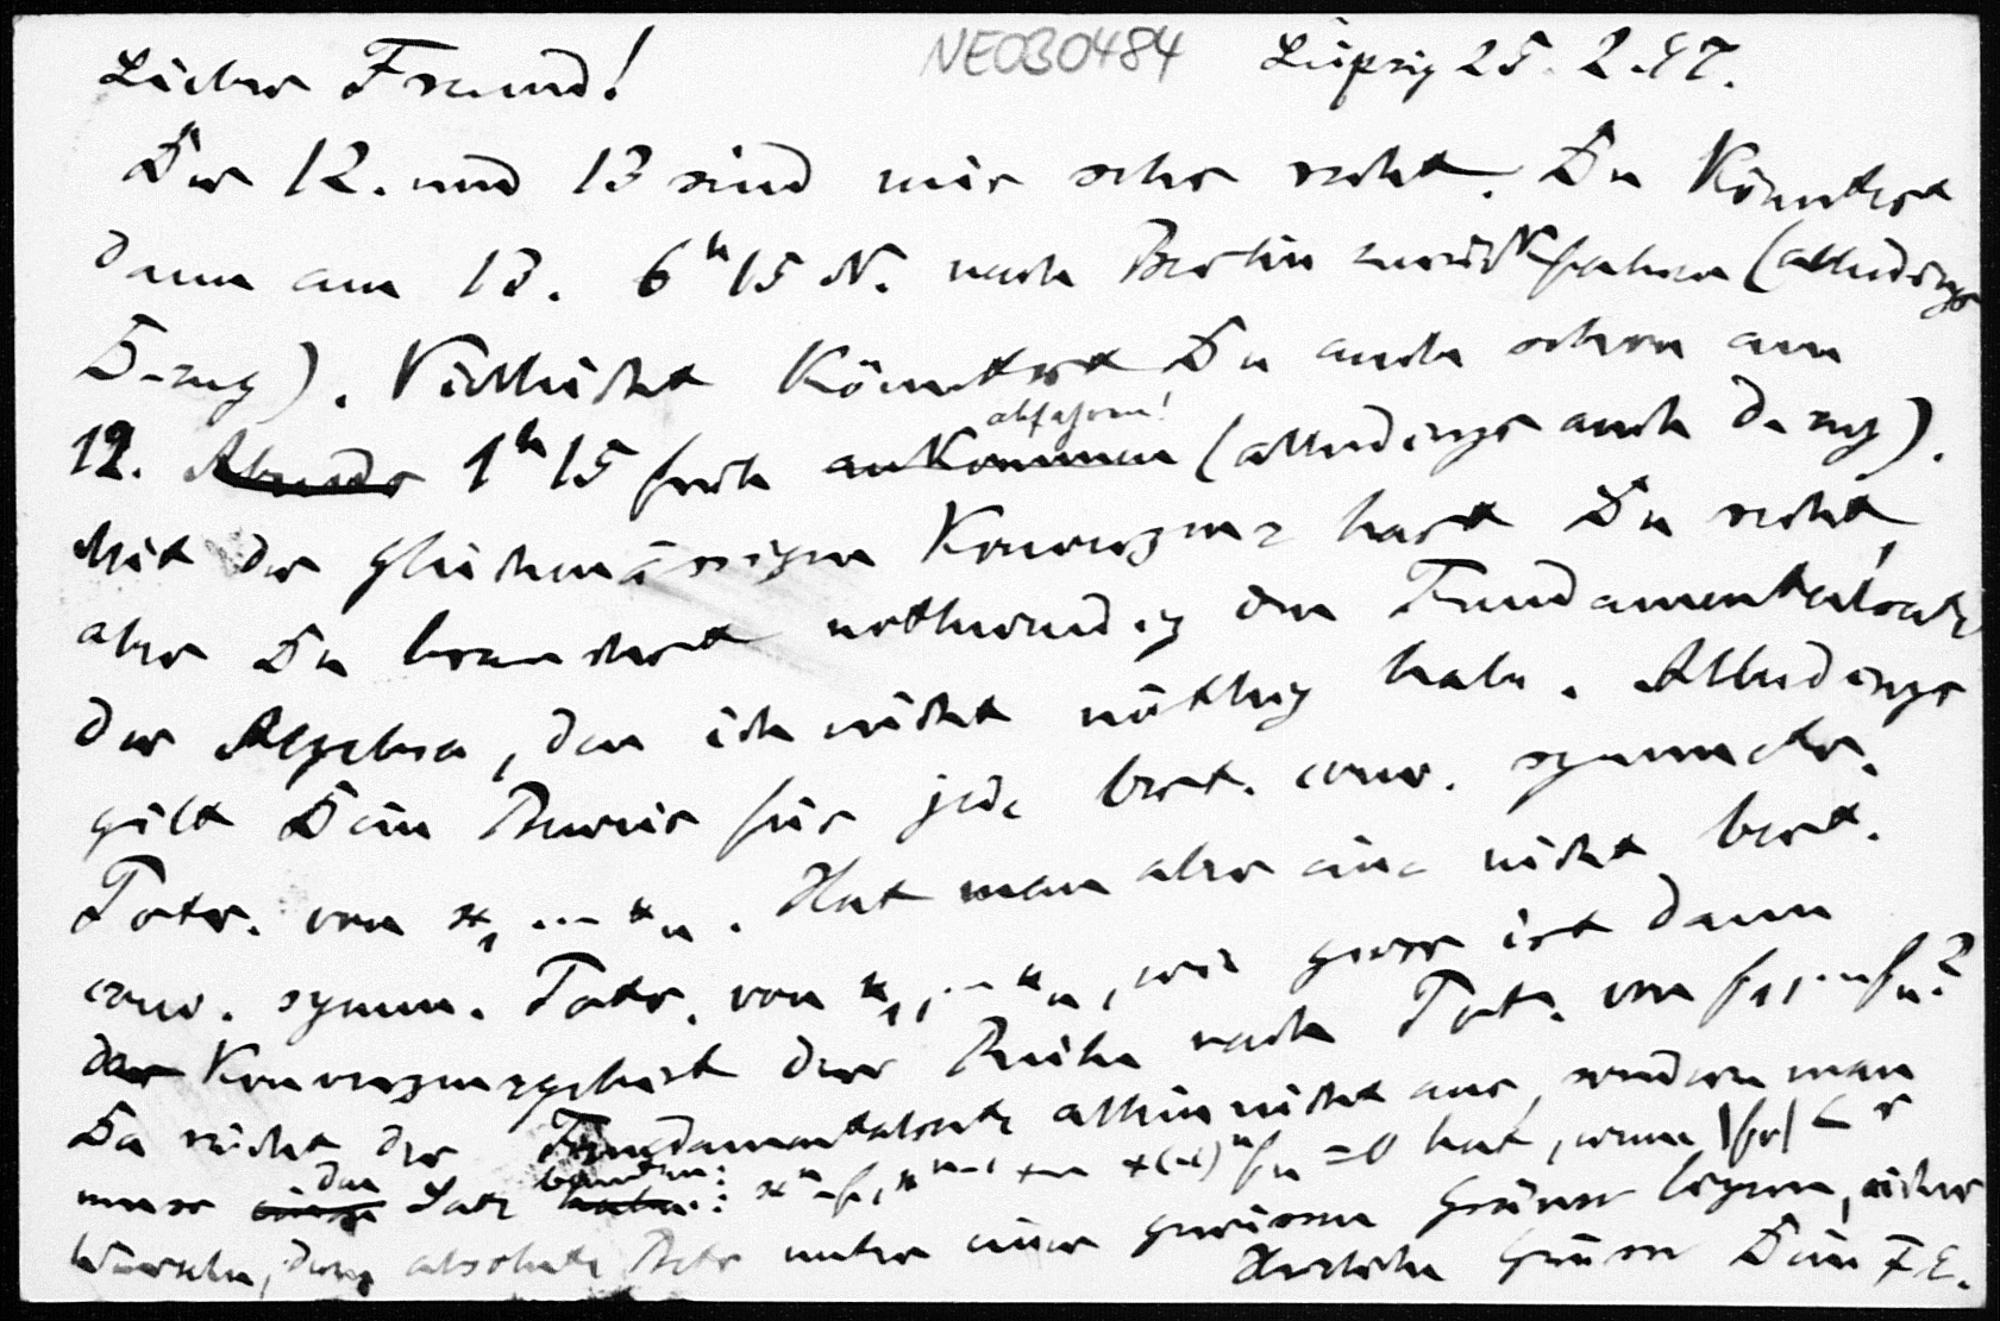 NE030484
Lieber Freund! Leipzig 25. 2. 97.
Der 12. und 13 sind mir sehr recht. Du könntest
dann am 13. 6h 15 N. nach Berlin zurückfahren (allerdings
D-zug). Vielleicht könntest Du auch schon am
12. Abends 1h 15 früh ankommen abfahren! (allerdings auch D-zug).
Mit der gleichmässigen Konvergenz hast Du recht,
aber Du brauchst nothwendig den Fundamentalsatz
der Algebra, den ich nicht nöthig habe. Allerdings
gilt Dein Beweis für jede best. conv. symmetr.
Potr. von x1 ... xn. Hat man aber eine nicht best.
conv. symm. Potr. von x1, ... xn, wie gross ist dann
das Konvergenzgebiet der Reihe nach Pot. von f1, ... fn?
Da reicht der Fundamentalsatz allein nicht aus, sondern man
muss den Satz : x^n - f1 x^n-1 + ... + (-1)^n fn = 0 hat, wenn |fν| < r
Wurzeln, deren absoluter Betr unter einer gewissen Grenze liegen, sicher
Herzliche Grüsse Dein F. E.